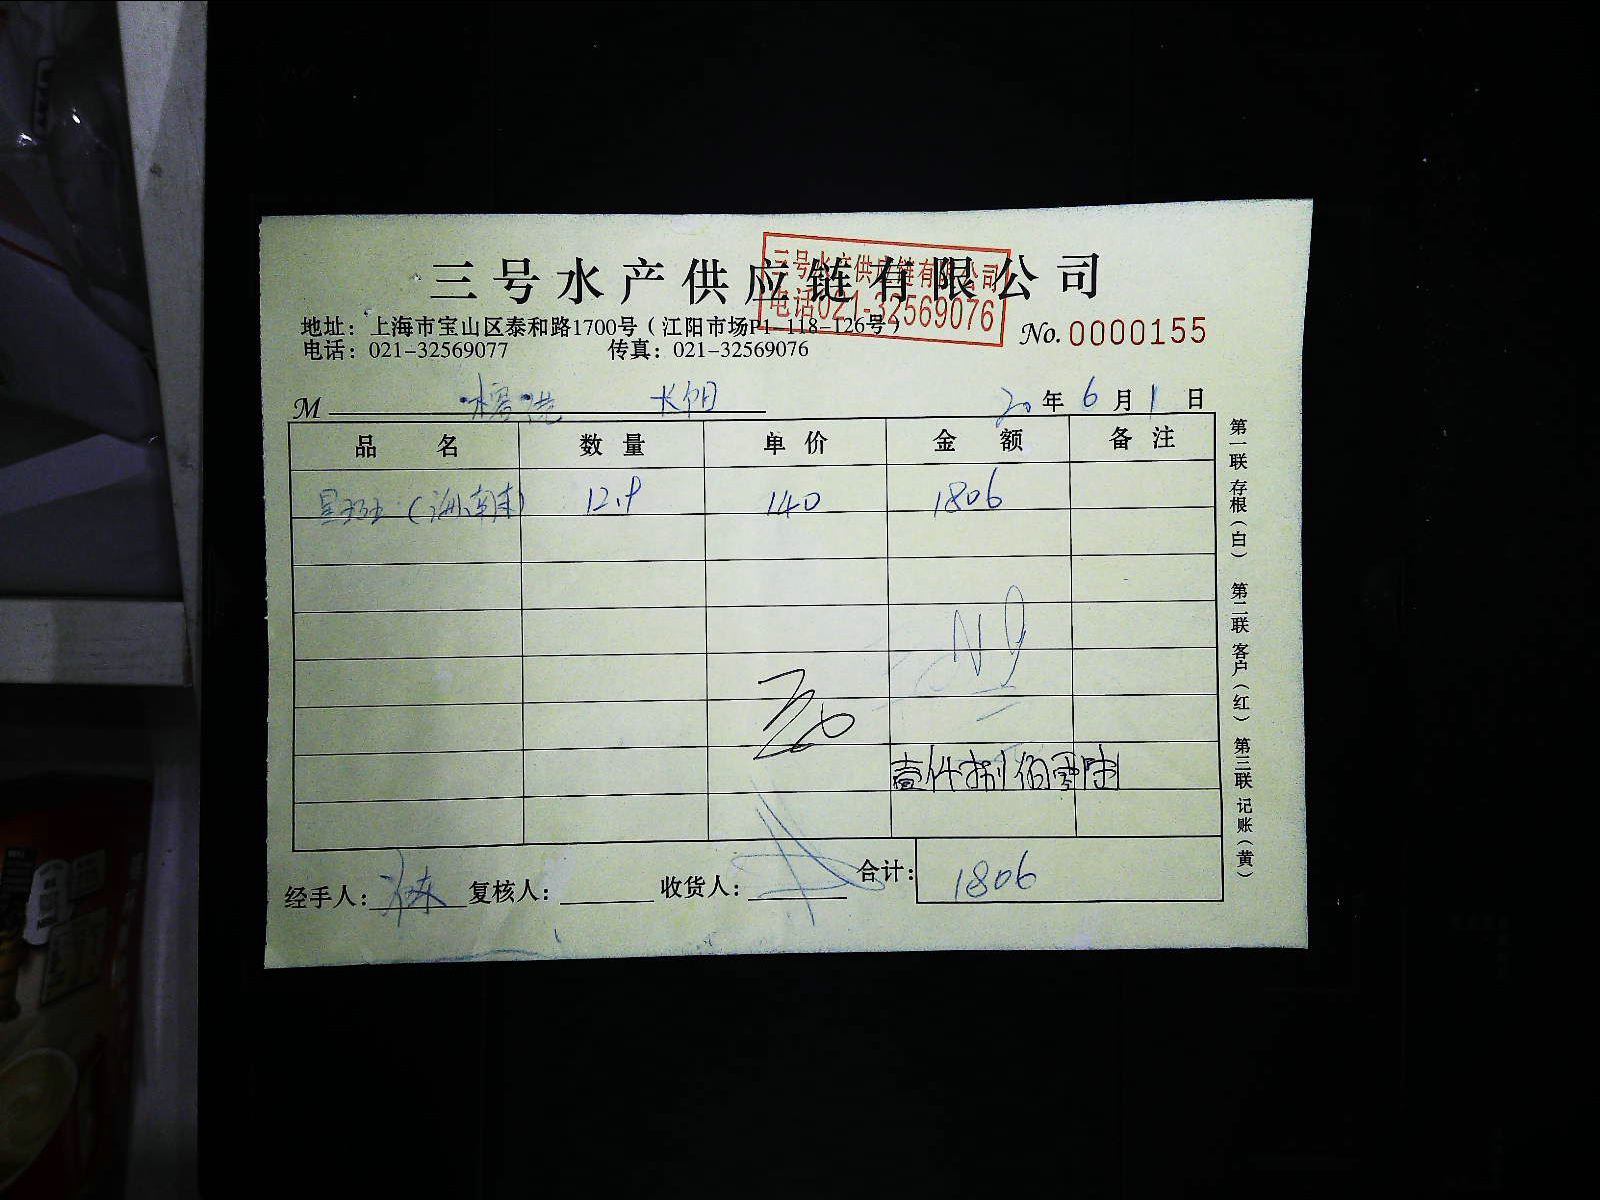 三号水产供应链有限公司
三号水产供应链有限公司
电话021-32569076
地址：上海市宝山区泰和路1700号（江阳市场P1-118-126号）
电话：021-32569077 传真：021-32569076
No.0000155
M 长阳
20年6月1日
品名 数量 单价 金额 备注
星斑（海南来） 12.9 140 1806
壹仟捌佰零陆
经手人： 复核人： 收货人： 合计：1806
第一联 存根（白） 第二联 客户（红） 第三联 记账（黄）